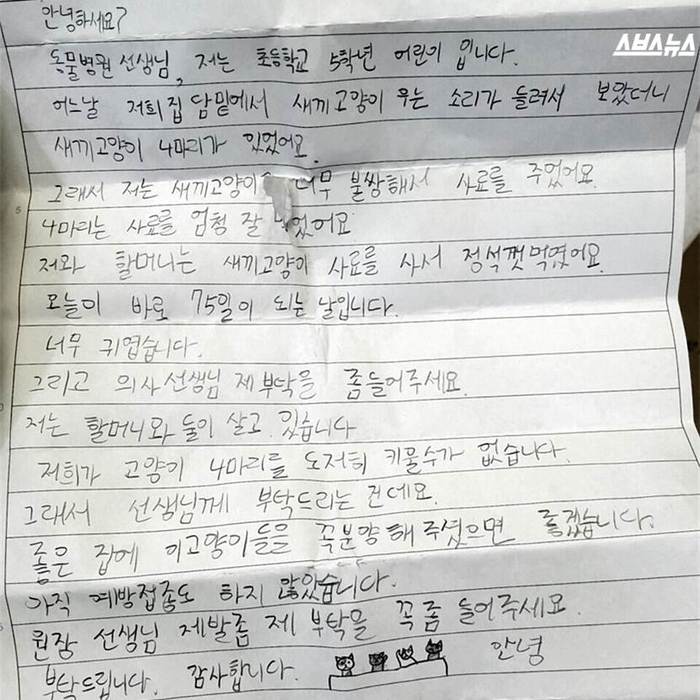 안녕하세요?
스브스뉴스
동물병원 선생님, 저는 초등학교 5학년 어린이 입니다.
어느날 저희집 담밑에서 새끼고양이 우는 소리가 들려서 보았더니
새끼고양이 4마리가 있었어요.
그래서 저는 새끼고양이 너무 불쌍해서 사료를 주었어요.
4마리는 사료를 엄청 잘 었어요
저와 할머니는 새끼고양이 사료를 사서 정석껏먹였어요.
오늘이 바로 75일이 되는 날입니다.
너무 귀엽습니다.
그리고 의사선생님 제 부탁을 좀들어주세요.
저는 할머니와 둘이 살고 있습니다
저희가 고양이 4마리를 도저히 키울수가 없습니다.
그래서 선생님께 부탁드리는 건데요.
좋은 집에 이고양이들을 꼭분양해주셨으면 좋겠습니다.
아직 예방접종도 하지 않았습니다.
원장 선생님 제발좀 제 부탁을 꼭좀 들어주세요.
부탁드립니다. 감사합니다. 안녕